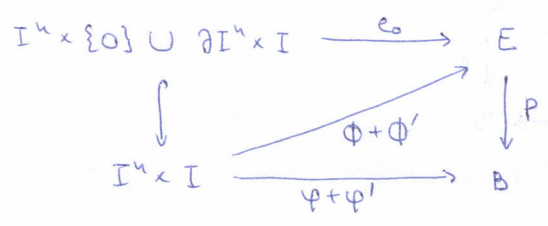 Iⁿ × {0} ∪ ∂Iⁿ × I e₀ E
Φ + Φ′ p
Iⁿ × I φ + φ′ B